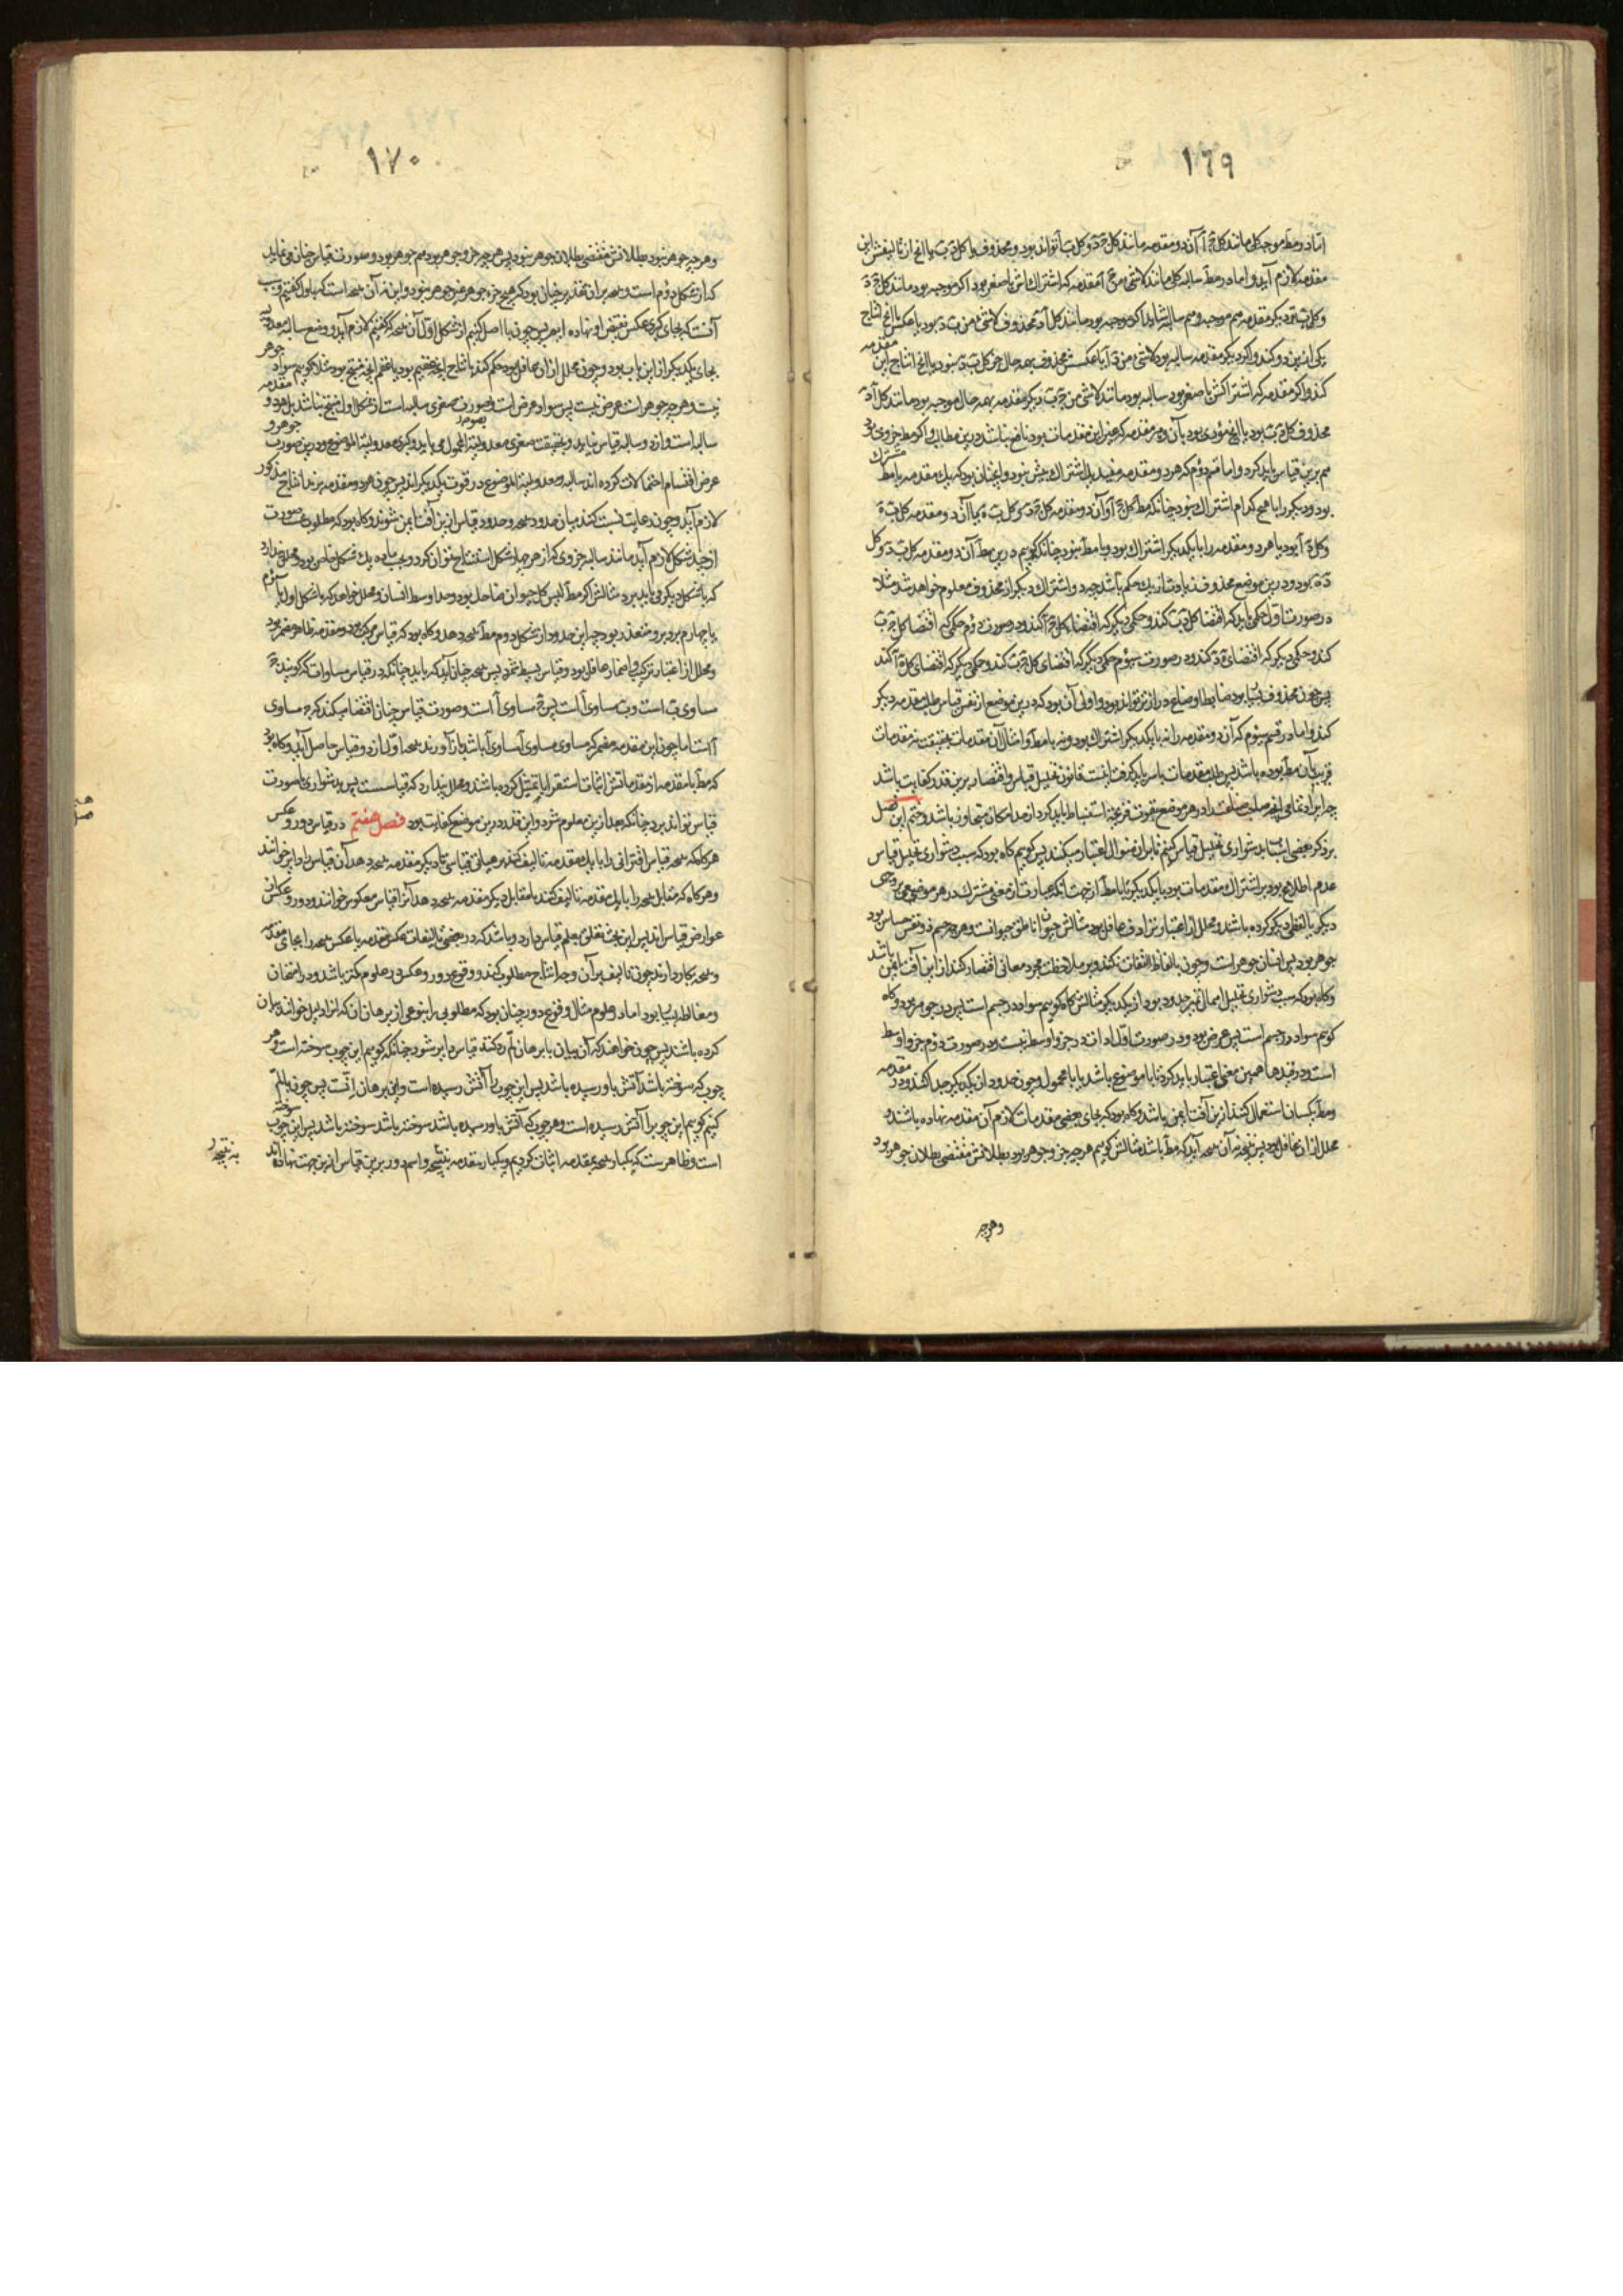 ١٦٩
اما در مط موجبه کلی مانند کل ج آ آن دو مقدمه مانند کل ج د و کل ب آ تواند بود و محذوف یا کل د ب یا آنچ از تالیفش این
مقدمه لازم آید و اما در مط سالبه کلی مانند لاشی من ج آ مقدمه که اشتراک اش با صغر بود اگر موجبه بود مانند کل ج د
یکی ازین دو کند و اگر دیگر مقدمه سالبه بود لاشی من د آ یا عکسش محذوف بهمه حال جز کل ب د نبود یا آنچ انتاج این مقدمه
کند و اگر مقدمه که اشتراکش با صغر بود سالبه بود مانند لاشی من ج ب دیگر مقدمه بهمه حال موجبه بود مانند کل آ د
محذوف کل د ب بود یا آنچ مؤدی بود بآن و هر مقدمه که غیر این مقدمات بود نافع نباشد درین مطالب و اگر مط جزوی بود
هم برین قیاس باید کرد و اما قسم دوم که هر دو مقدمه مفید یک اشتراک بیش نبود و آنچنان بود که یک مقدمه با مط مشترک
بود و دیگر را با هیچ کدام اشتراک نبود چنانکه مط کل ج آ و آن دو مقدمه کل ج د و کل ب ه یا آن دو مقدمه کل ب ه
و کل ه آ بود یا هر دو مقدمه را با یکدیگر اشتراک بود و با مط نبود چنانکه گوییم درین مط آن دو مقدمه کل ب د و کل
د ه بود و درین موضع محذوف زیادت از یک حکم باشد چه دو اشتراک دیگر از محذوف معلوم خواهد شد مثلا
در صورت اول حکمی باید که اقتضاء کل د ب کند و حکمی دیگر که اقتضاء کل ه آ کند و در صورت دوم حکمی که اقتضاء کل ج ب
کند و حکمی دیگر که اقتضای د ه کند و در صورت سوم حکمی دیگر که اقتضای کل ج ب کند و حکمی دیگر که اقتضای کل ه آ کند
پس چون محذوف بسیار بود ضابط اوضاع دراز تر تواند بود و اولی آن بود که درین موضع از نفس قیاس طلب مقدمه دیگر
کند و اما در قسم سوم که آن دو مقدمه را نه با یکدیگر اشتراک بود و نه با مط و امثال آن مقدمات بحقیقت نه مقدمات
قریب بآن مط بوده باشد پس طلب مقدمات باسر باید گرفت اینست قانون تحلیل قیاس و اقتصار برین قدر کفایت باشد
چه ایراد تمامی آنچ مطلب صناعت در هر موضع بقوت قریحه استنباط باید کرد از حد امکان متجاوز باشد و ختم این فصل
بر ذکر بعضی اسباب دشواری تحلیل قیاس کنیم بر این منوال اعتبار میکند پس گوییم گاه بود که سبب دشواری تحلیل قیاس
عدم اطلاع بود بر اشتراک مقدمات بود با یکدیگر یا با مط از جهت آنکه عبارت از معنی مشترک در هر موضعی بر وجهی
دیگر یا لفظی دیگر کرده باشند و محلل از اعتبار ترادف غافل بود مثالش حیوان ناطق حیوانست و هر چه جسم ذو نفس حساس بود
جوهر بود پس انسان جوهر است و چون بالفاظ التفات نکند و بر ملاحظت مجرد معانی اقتصار کند از این آفت ایمن باشد
و گاه بود که سبب دشواری تحلیل اهمال تمیز حدود بود از یکدیگر مثالش گاه گوییم سواد در جسم است پس در جوهر بود و گاه
گوییم سواد در جسم است پس عرض بود و در صورت اول ادات در جزو اوسط نیست و در صورت دوم جزو اوسط
است و در قیدها همین معنی اعتبار باید کرد تا با موضوع باشد یا با محمول و چون حدود از یکدیگر جدا کند و در مقدمه
و مط یکسان استعمال کند ازین آفت ایمن باشد و گاه بود که بجای بعضی مقدمات لازم آن مقدمه نهاده باشند و
محلل از آن غافل بود پس نتیجه نه آن نتیجه آید که مط باشد مثالش گوییم هر چه جزو جوهر بود بطلانش مقتضی بطلان جوهر بود
و هر چه
١٧٠
و هر چه جوهر نبود بطلانش مقتضی بطلان جوهر نبود پس هر چه جزو جوهر بود هم جوهر بود و صورت قیاس چنان می نماید
که از شکل دوم است و نتیجه بران تقدیر چنان بود که هیچ جزء جوهر غیر جوهر نبود و این نه آن نتیجه است که باول گفتیم و سبب
آنست که بجای کبری عکس نقیض او نهاده ایم پس چون با اصل کنیم از شکل اول آن نتیجه که گفتیم لازم آید و وضع سالبه و معدوله
بجای یکدیگر از این باب بود و چون محلل از آن غافل بود حکم کند بانتاج آنچه عقیم بود یا عقم آنچه منتج بود مثلا گوییم سواد جوهر
نیست و هر چه جوهر است عرض نیست پس سواد عرض است و بصورت صغری سالبه است از شکل اول منتج نباشد بل هر دو مقدمه
سالبه است و از دو سالبه قیاس نیاید و بحقیقت صغری معدولیة المحمول می باید و کبری معدولیة الموضوع و درین صورت جوهر و
عرض اقتسام احتمالات کرده اند سالبه و معدولیة الموضوع در قوت یکدیگر اند پس چون هر دو مقدمه برند انتاج مذکور
لازم آید و چون رعایت نسبت کنند میان حدود نتیجه و حدود قیاس ازین آفت ایمن شوند و گاه بود که مطلوب بصورت
از چند شکل لازم آید مانند سالبه جزوی که از هر چهار شکل استنتاج توان کرد و بحسب ماده یک شکل خاص بود و محلل پندارد
که با شکل دیگر می باید برد مثالش اگر مط لیس کل حیوان ضاحک بود و حد اوسط انسان و محلل خواهد که با شکل اول یا سوم
یا چهارم برد برو متعذر بود چه این حدود از شکل دوم مط نتیجه دهد و گاه بود که قیاس مرکب بود و مقدمه ظاهر مضمر بود
و محلل از اعتبار ترکیب و اضمار غافل بود و قیاس بسیط شمرد پس نتیجه چنان آید که باید چنانکه در قیاس مساوات که گویند ج
مساوی ب است و ب مساوی آ است پس ج مساوی آ است و صورت قیاس چنان اقتضا میکند که ج مساوی
آ است اما چون این مقدمه مضمر که مساوی مساوی آ مساوی آ باشد باز آورند نتیجه اول از دو قیاس حاصل آید و گاه بود
که مط یا مقدمه از مقدماتش اثبات استقرا یا تمثیل کرده باشند و محلل پندارد که قیاسست پس بدشواری با صورت
قیاس تواند برد چنانکه بعد ازین معلوم شود و این قدر درین موضع کفایت بود فصل هفتم در قیاس دور و عکس
هر گاه که نتیجه قیاس اقترانی را با یک مقدمه تالیف کنند بر هیاتی قیاسی تا دیگر مقدمه نتیجه دهد آن قیاس را دایر خوانند
و هر گاه که مقابل نتیجه را با یک مقدمه تالیف کنند تا مقابل دیگر مقدمه نتیجه دهد آنرا قیاس معکوس خوانند و دور و عکس از
عوارض قیاس اند پس این بحث تعلق بعلم قیاس دارد و باشد که در بعضی تالیفات عکس مقدمه یا عکس نتیجه را بجای مقدمه
و نتیجه بکار دارند چون تالیف بر آن وجه انتاج مطلوب کند و وقوع دور و عکس در علوم کمتر باشد و در امتحان
و مغالطه بسیار بود اما در علوم مثال وقوع دور چنان بود که مطلوبی را بنوعی از برهان ان که آنرا دلیل خوانند بیان
کرده باشند پس چون خواهند که آن بیان با برهان لم رد کنند قیاس دایر شود چنانکه گوییم این چوب سوخته است و هر
چوب که سوخته باشد آتش باو رسیده باشد پس این چوب را آتش رسیده است و این برهان انست پس چون با لم
کنیم گوییم این چوب را آتش رسیده است و هر چوب که آتش باو رسیده باشد سوخته باشد پس این چوب سوخته
است و ظاهر ست که یکبار نتیجه بمقدمه اثبات کردیم و یکبار مقدمه بنتیجه و اسم دور برین قیاس ازین جهت نهاده اند